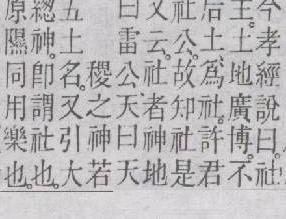 今孝經說曰。社
主。土地廣博。不
后土爲社。許君
社公。故知社是
又云。社者神地
曰雷公天曰天
稷之神若
五土名。又引大
總神。即謂社也。
原隰同用樂也。